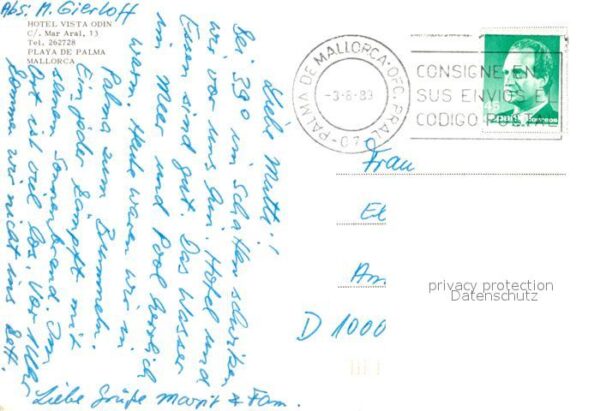 Abs: M. Gierloff
HOTEL VISTA ODIN
C/. Mar Aral, 13
Tel. 262728
PLAYA DE PALMA
MALLORCA
Liebe Mutti!
Bei 39° im Schatten schwitzen
wir vor uns hin. Hotel und
Essen sind gut. Das Wasser
im Meer und Pool herrlich
warm. Heute waren wir in
Palma zum Bummeln.
Ein jeder kämpft mit
seinem Sonnenbrand. Im
Ort ist viel los. Vor Uhr
kommen wir nicht ins Bett.
Liebe Grüße Margit & Fam.
PALMA DE MALLORCA-OFC. PRAL.
-3.-8.-89
-07
CONSIGNE EN
SUS ENVIOS E
CODIGO POSTAL
Correos
Frau
El
Am
D 1000
privacy protection
Datenschutz